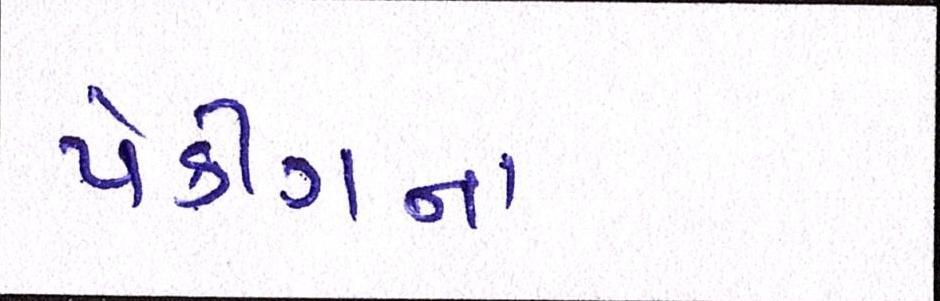 પેકીગના